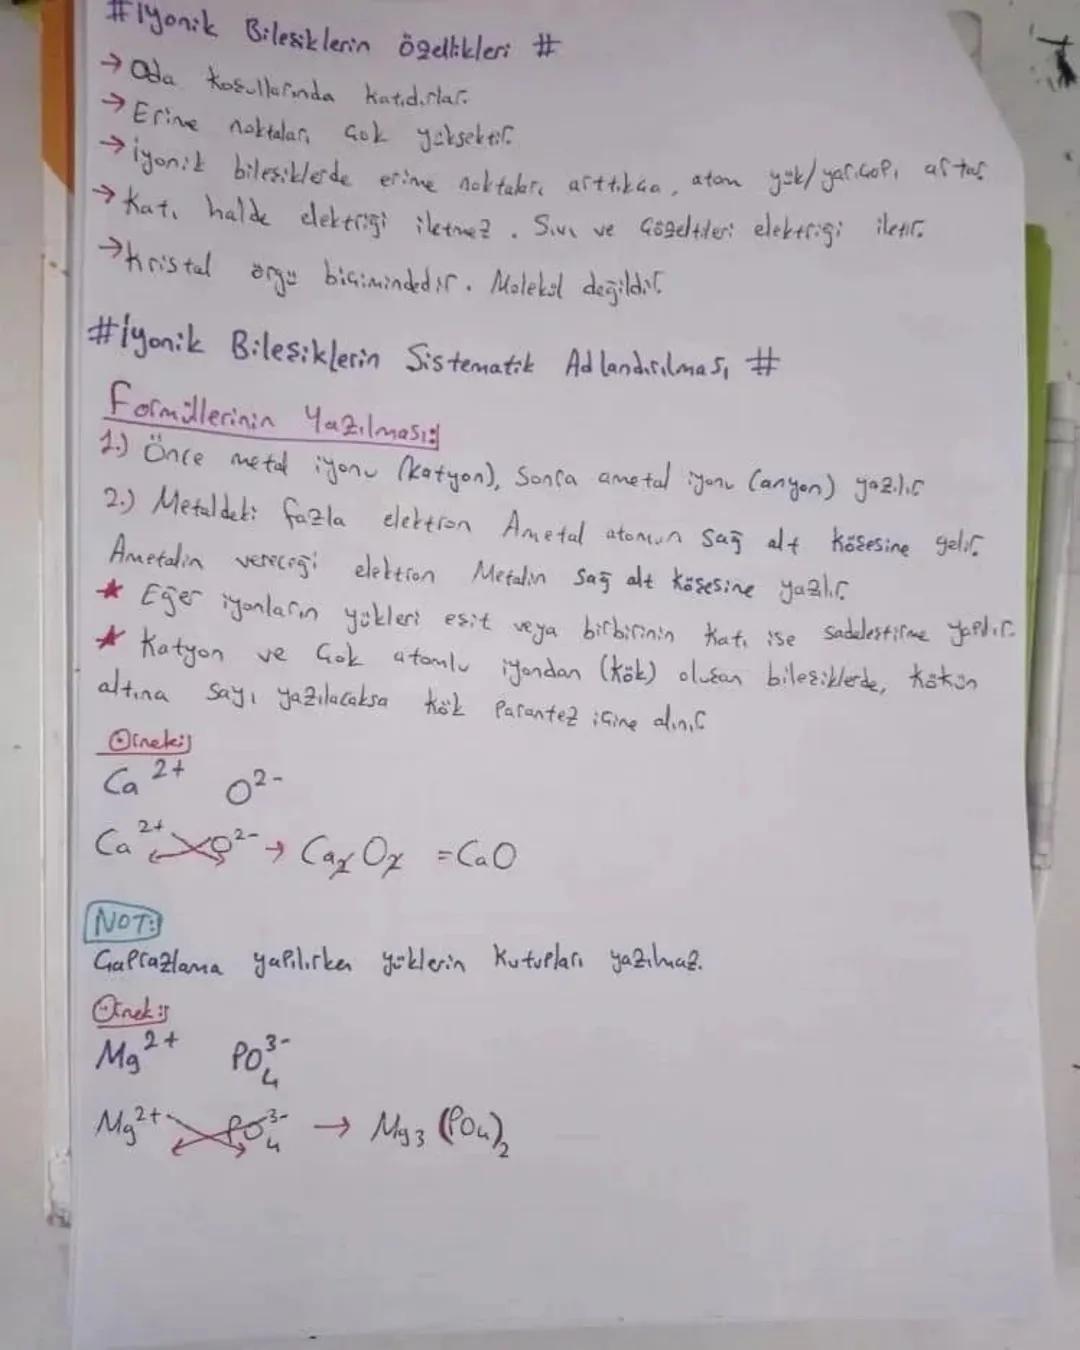 #İyonik Bileşiklerin özellikleri #
→ Oda koşullarında katıdırlar.
→ Erime noktaları çok yüksektir.
→ İyonik bileşiklerde erime noktaları arttıkça, atom yük/yarıçapı artar.
→ Katı halde elektriği iletmez. Sıvı ve çözeltileri elektriği iletir.
→ Kristal örgü biçimindedir. Molekül değildir.
#İyonik Bileşiklerin Sistematik Adlandırılması #
Formüllerinin Yazılması:
1.) Önce metal iyonu (katyon), Sonra ametal iyonu (anyon) yazılır
2.) Metaldeki fazla elektron Ametal atomun sağ alt köşesine gelir.
Ametalin vereceği elektron Metalin sağ alt köşesine yazılır.
★ Eğer iyonların yükleri eşit veya birbirinin katı ise sadeleştirme yapılır.
★ Katyon ve çok atomlu iyondan (kök) oluşan bileşiklerde, kökün
altına sayı yazılacaksa kök parantez içine alınır
Örnek:
Ca²⁺ O²⁻
Ca²⁺ O²⁻ → Ca₂O₂ = CaO
NOT:
Çaprazlama yapılırken yüklerin kutupları yazılmaz.
Örnek:
Mg²⁺ PO₄³⁻
Mg²⁺ PO₄³⁻ → Mg₃(PO₄)₂